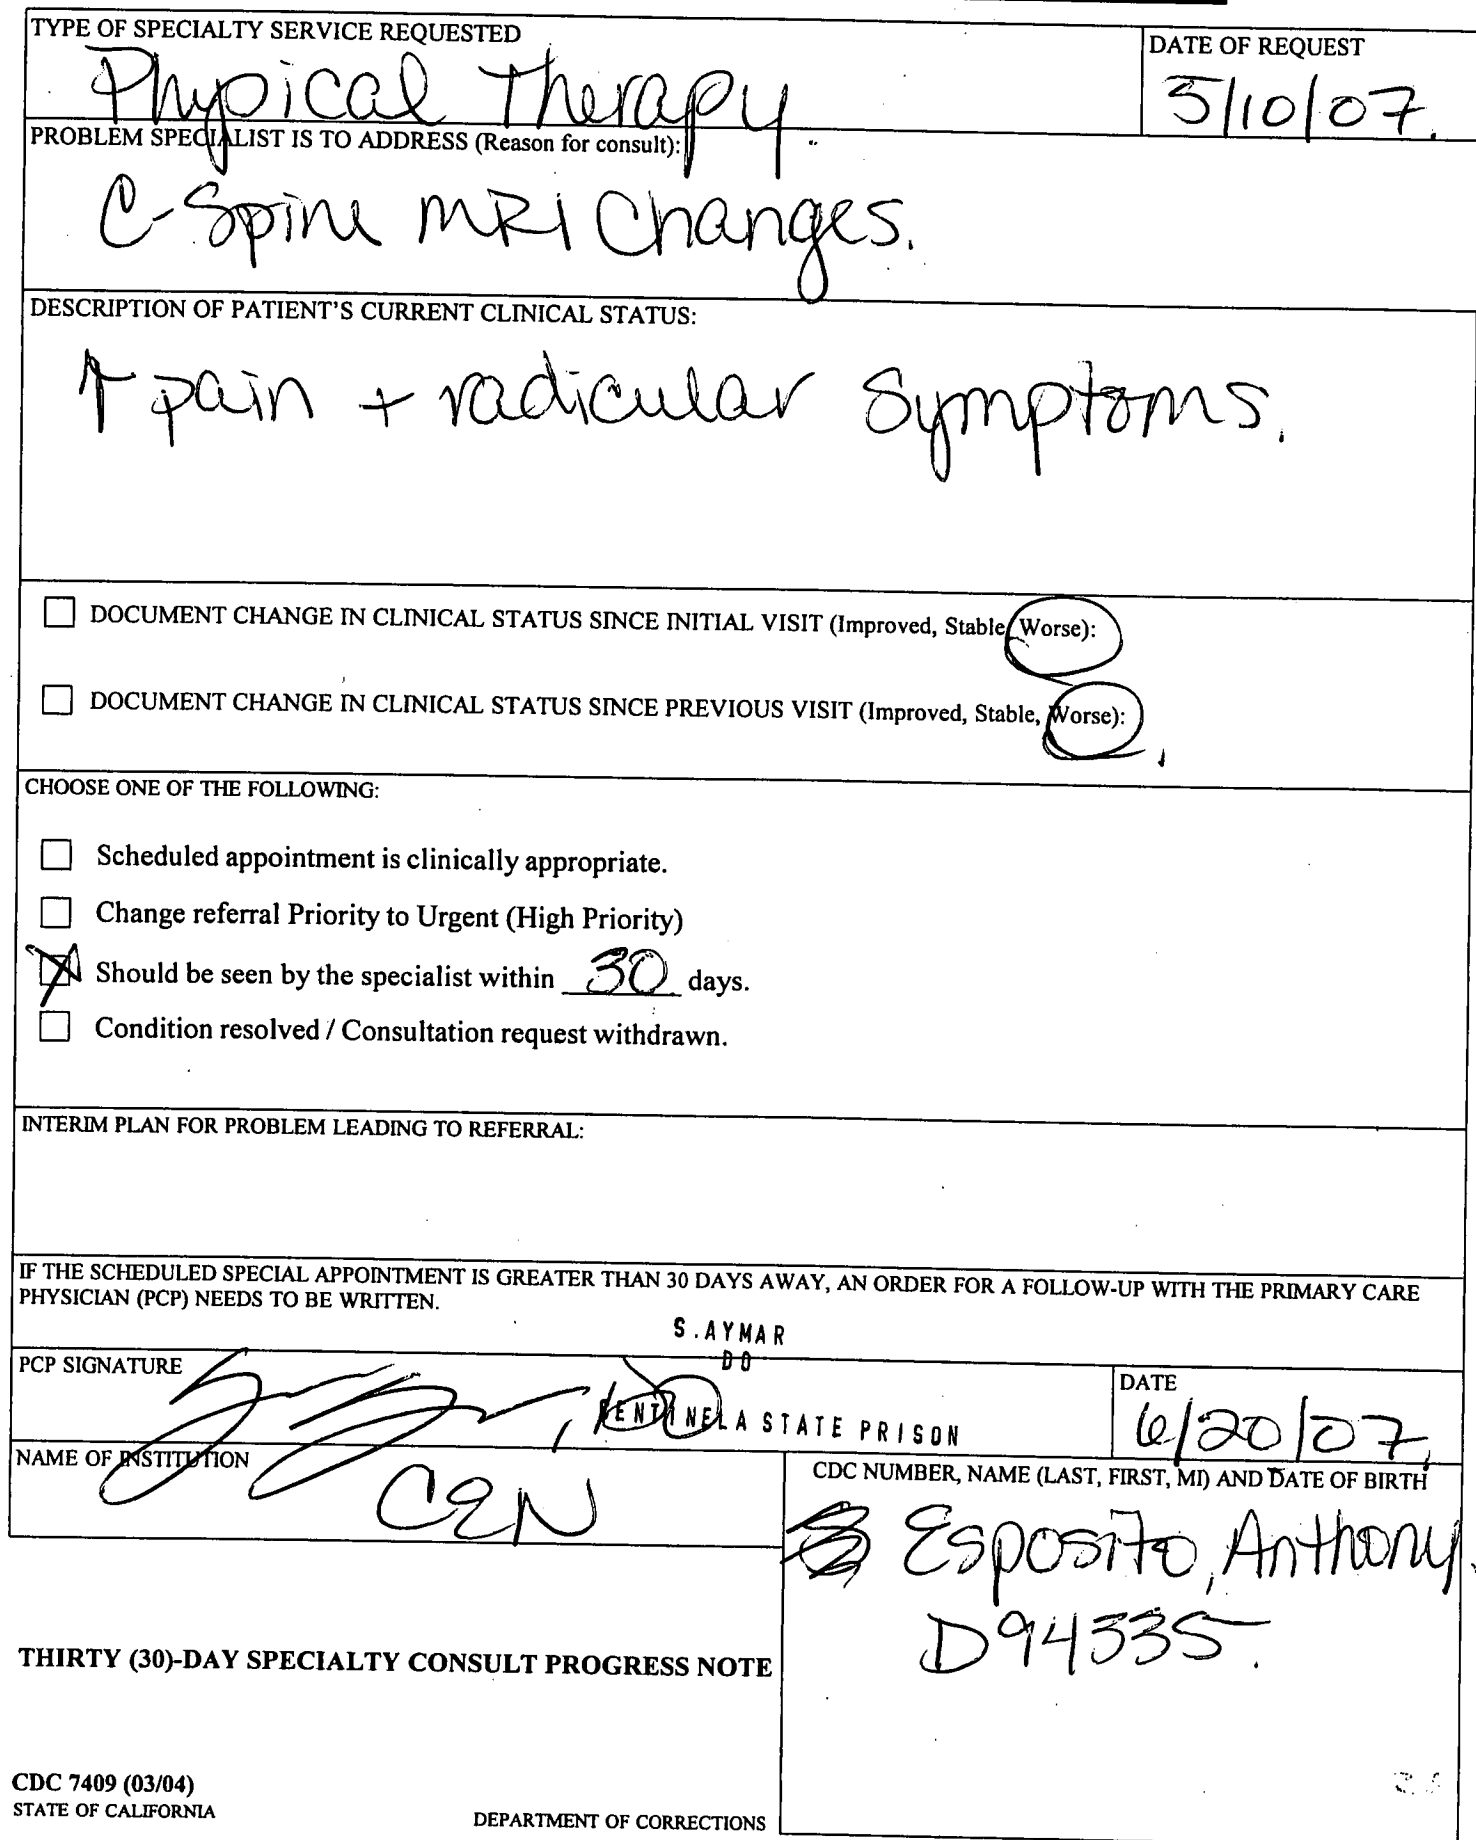 TYPE OF SPECIALTY SERVICE REQUESTED
Physical Therapy
DATE OF REQUEST
5/10/07.
PROBLEM SPECIALIST IS TO ADDRESS (Reason for consult):
C-Spine MRI Changes.
DESCRIPTION OF PATIENT'S CURRENT CLINICAL STATUS:
↑ pain + radicular Symptoms.
DOCUMENT CHANGE IN CLINICAL STATUS SINCE INITIAL VISIT (Improved, Stable, Worse):
DOCUMENT CHANGE IN CLINICAL STATUS SINCE PREVIOUS VISIT (Improved, Stable, Worse):
CHOOSE ONE OF THE FOLLOWING:
Scheduled appointment is clinically appropriate.
Change referral Priority to Urgent (High Priority)
Should be seen by the specialist within 30 days.
Condition resolved / Consultation request withdrawn.
INTERIM PLAN FOR PROBLEM LEADING TO REFERRAL:
IF THE SCHEDULED SPECIAL APPOINTMENT IS GREATER THAN 30 DAYS AWAY, AN ORDER FOR A FOLLOW-UP WITH THE PRIMARY CARE
PHYSICIAN (PCP) NEEDS TO BE WRITTEN.
S.AYMAR
DO
PCP SIGNATURE
CENTINELA STATE PRISON
DATE
6/20/07,
NAME OF INSTITUTION
CEN
CDC NUMBER, NAME (LAST, FIRST, MI) AND DATE OF BIRTH
Esposito, Anthony.
D94335.
THIRTY (30)-DAY SPECIALTY CONSULT PROGRESS NOTE
CDC 7409 (03/04)
STATE OF CALIFORNIA
DEPARTMENT OF CORRECTIONS